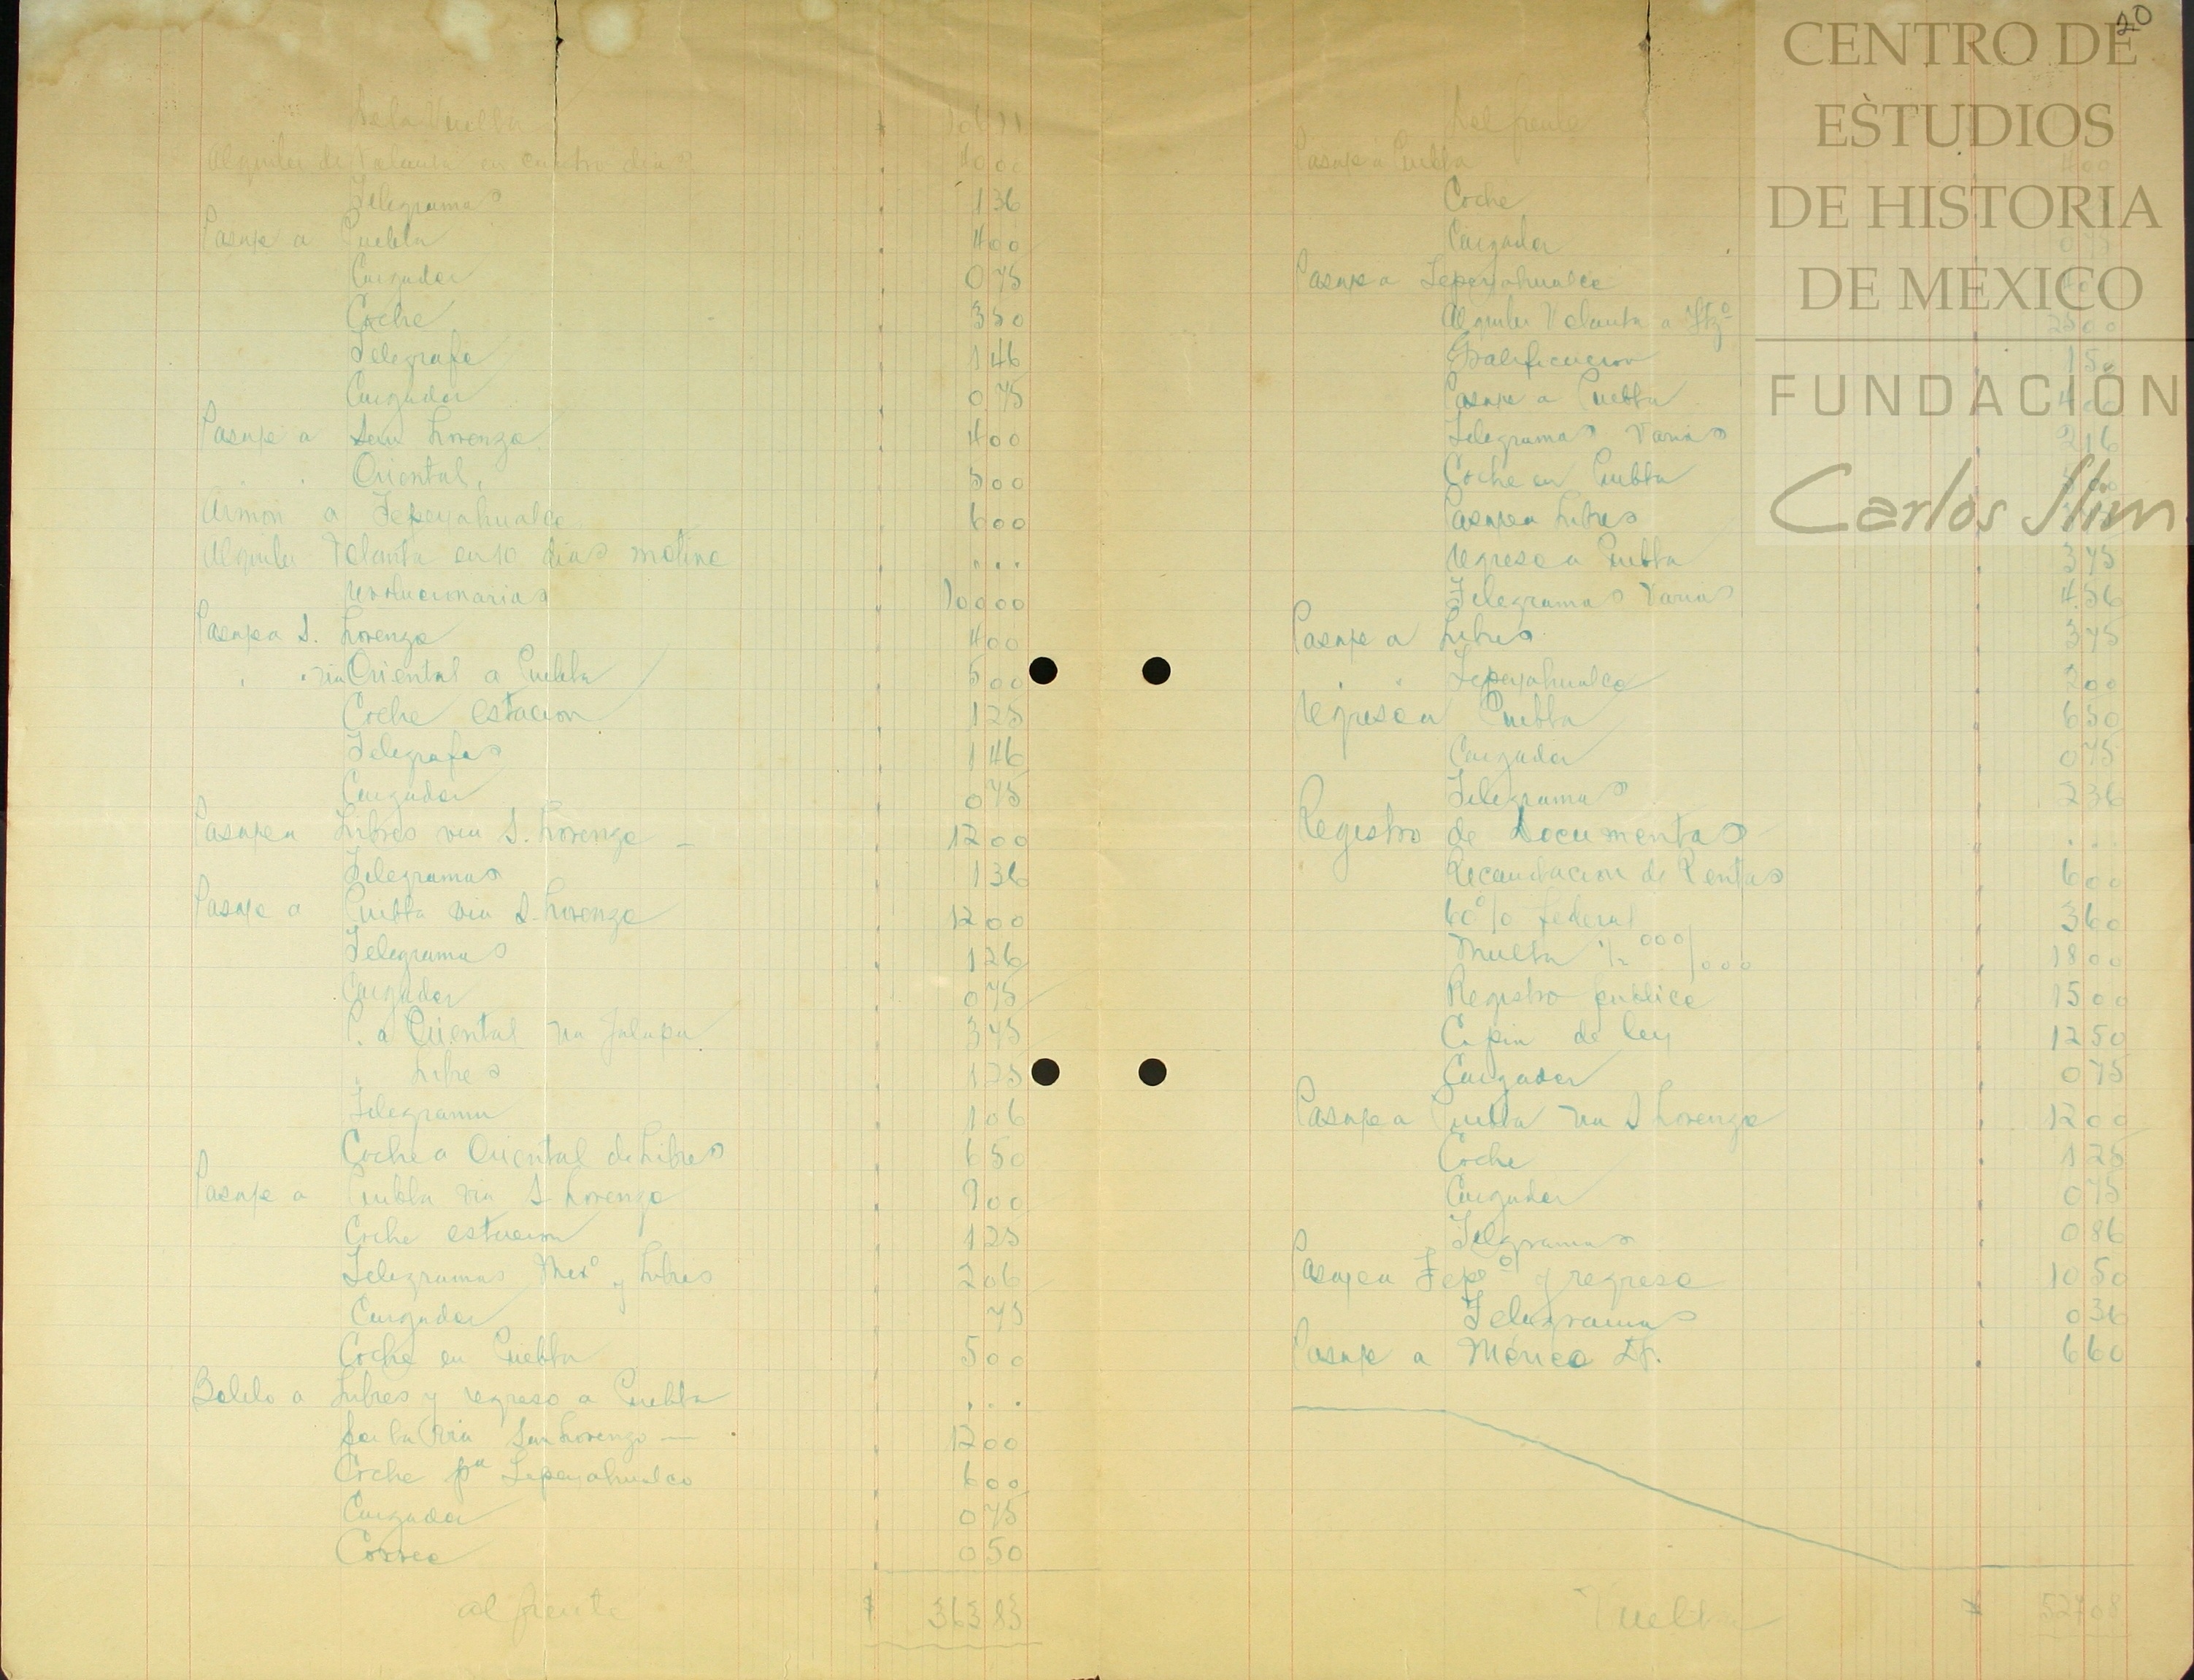 20
CENTRO DE
ESTUDIOS
DE HISTORIA
DE MEXICO
FUNDACIÓN
Carlos Slim
De la Vuelta
Alquiler de Volanta en cuatro dias 4000
Telegramas 1 36
Pasaje a Puebla 4 00
Cargador 0 75
Coche 3 50
Telegrafo 1 46
Cargador 0 75
Pasaje a San Lorenzo 4 00
" " Oriental, 5 00
Armon a Tepeyahualco 6 00
Alquiler Volanta en 10 dias motivo ...
revolucionarios 100 00
Pasaje a S. Lorenzo 4 00
" " via Oriental a Puebla 5 00
Coche estacion 1 25
Telegrafos 1 46
Cargador 0 75
Pasaje a Libres via S. Lorenzo — 12 00
Telegramas 1 36
Pasaje a Puebla via S. Lorenzo 12 00
Telegramas 1 26
Cargador 0 75
P. a Oriental via Jalapa 3 75
" Libres 1 25
Telegrama 1 06
Coche a Oriental de Libres 6 50
Pasaje a Puebla via S. Lorenzo 9 00
Coche estacion 1 25
Telegramas Mexo y Libres 2 06
Cargador 75
Coche en Puebla 5 00
Boleto a Libres y regreso a Puebla ...
por la via San Lorenzo — 12 00
Coche pa Tepeyahualco 6 00
Cargador 0 75
Correo 0 50
al frente $ 363 83
Del frente
Pasaje a Puebla 4 00
Coche
Cargador 0 75
Pasaje a Tepeyahualco
Alquiler Volanta a 25 00
Gratificacion 1 50
Pasaje a Puebla 4 00
Telegramas varios 2 16
Coche en Puebla
Pasaje a Libres
Regreso a Puebla 3 75
Telegramas varios 4 56
Pasaje a Libres 3 75
" " Tepeyahualco 2 00
Regreso a Puebla 6 50
Cargador 0 75
Telegramas 2 36
Registro de Documentos ...
Recaudacion de Rentas 6 00
60% federal 3 60
Multa 18 00
Registro publico 15 00
Copia de ley 12 50
Cargador 0 75
Pasaje a Puebla via S Lorenzo 12 00
Coche 1 25
Cargador 0 75
Telegramas 0 86
Pasaje a Tepo y regreso 10 50
Telegramas 0 36
Pasaje a Mexico D.F. 6 60
Vuelta $ 527 08